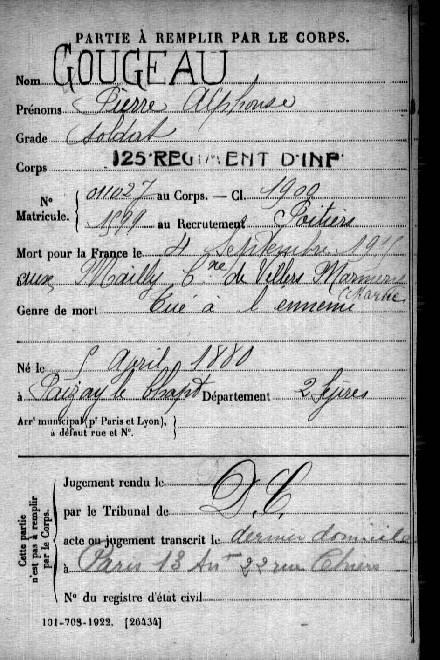 PARTIE À REMPLIR PAR LE CORPS.
Nom GOUGEAU
Prénoms Pierre Alphonse
Grade Soldat
Corps 125 REGIMENT D'INF
N° Matricule. 011027 au Corps. — Cl. 1900
1899 au Recrutement Poitiers
Mort pour la France le 4 Septembre 191
aux Mailly Cne de Villers Marmery
Marne
Genre de mort Tué à l'ennemi
Né le 5 April 1880
à Paizay le Chapt Département 2 Sèvres
Arrt municipal (pr Paris et Lyon), à défaut rue et N°.
Cette partie n'est pas à remplir par le Corps.
Jugement rendu le
par le Tribunal de D.C.
acte ou jugement transcrit le dernier domicile
à Paris 13 Arrt 22 rue
N° du registre d'état civil
101-708-1922. [26434]